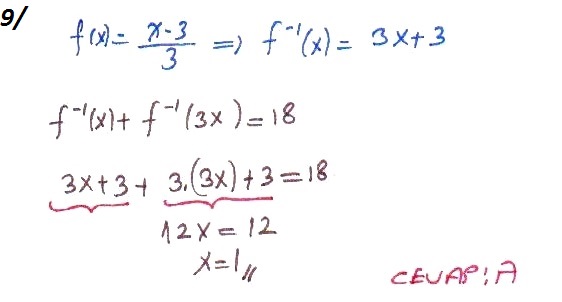 9/
f(x) = x-3/3 ⇒ f⁻¹(x) = 3x+3
f⁻¹(x) + f⁻¹(3x) = 18
3x+3 + 3.(3x)+3 = 18
12x = 12
x=1//
CEVAP: A